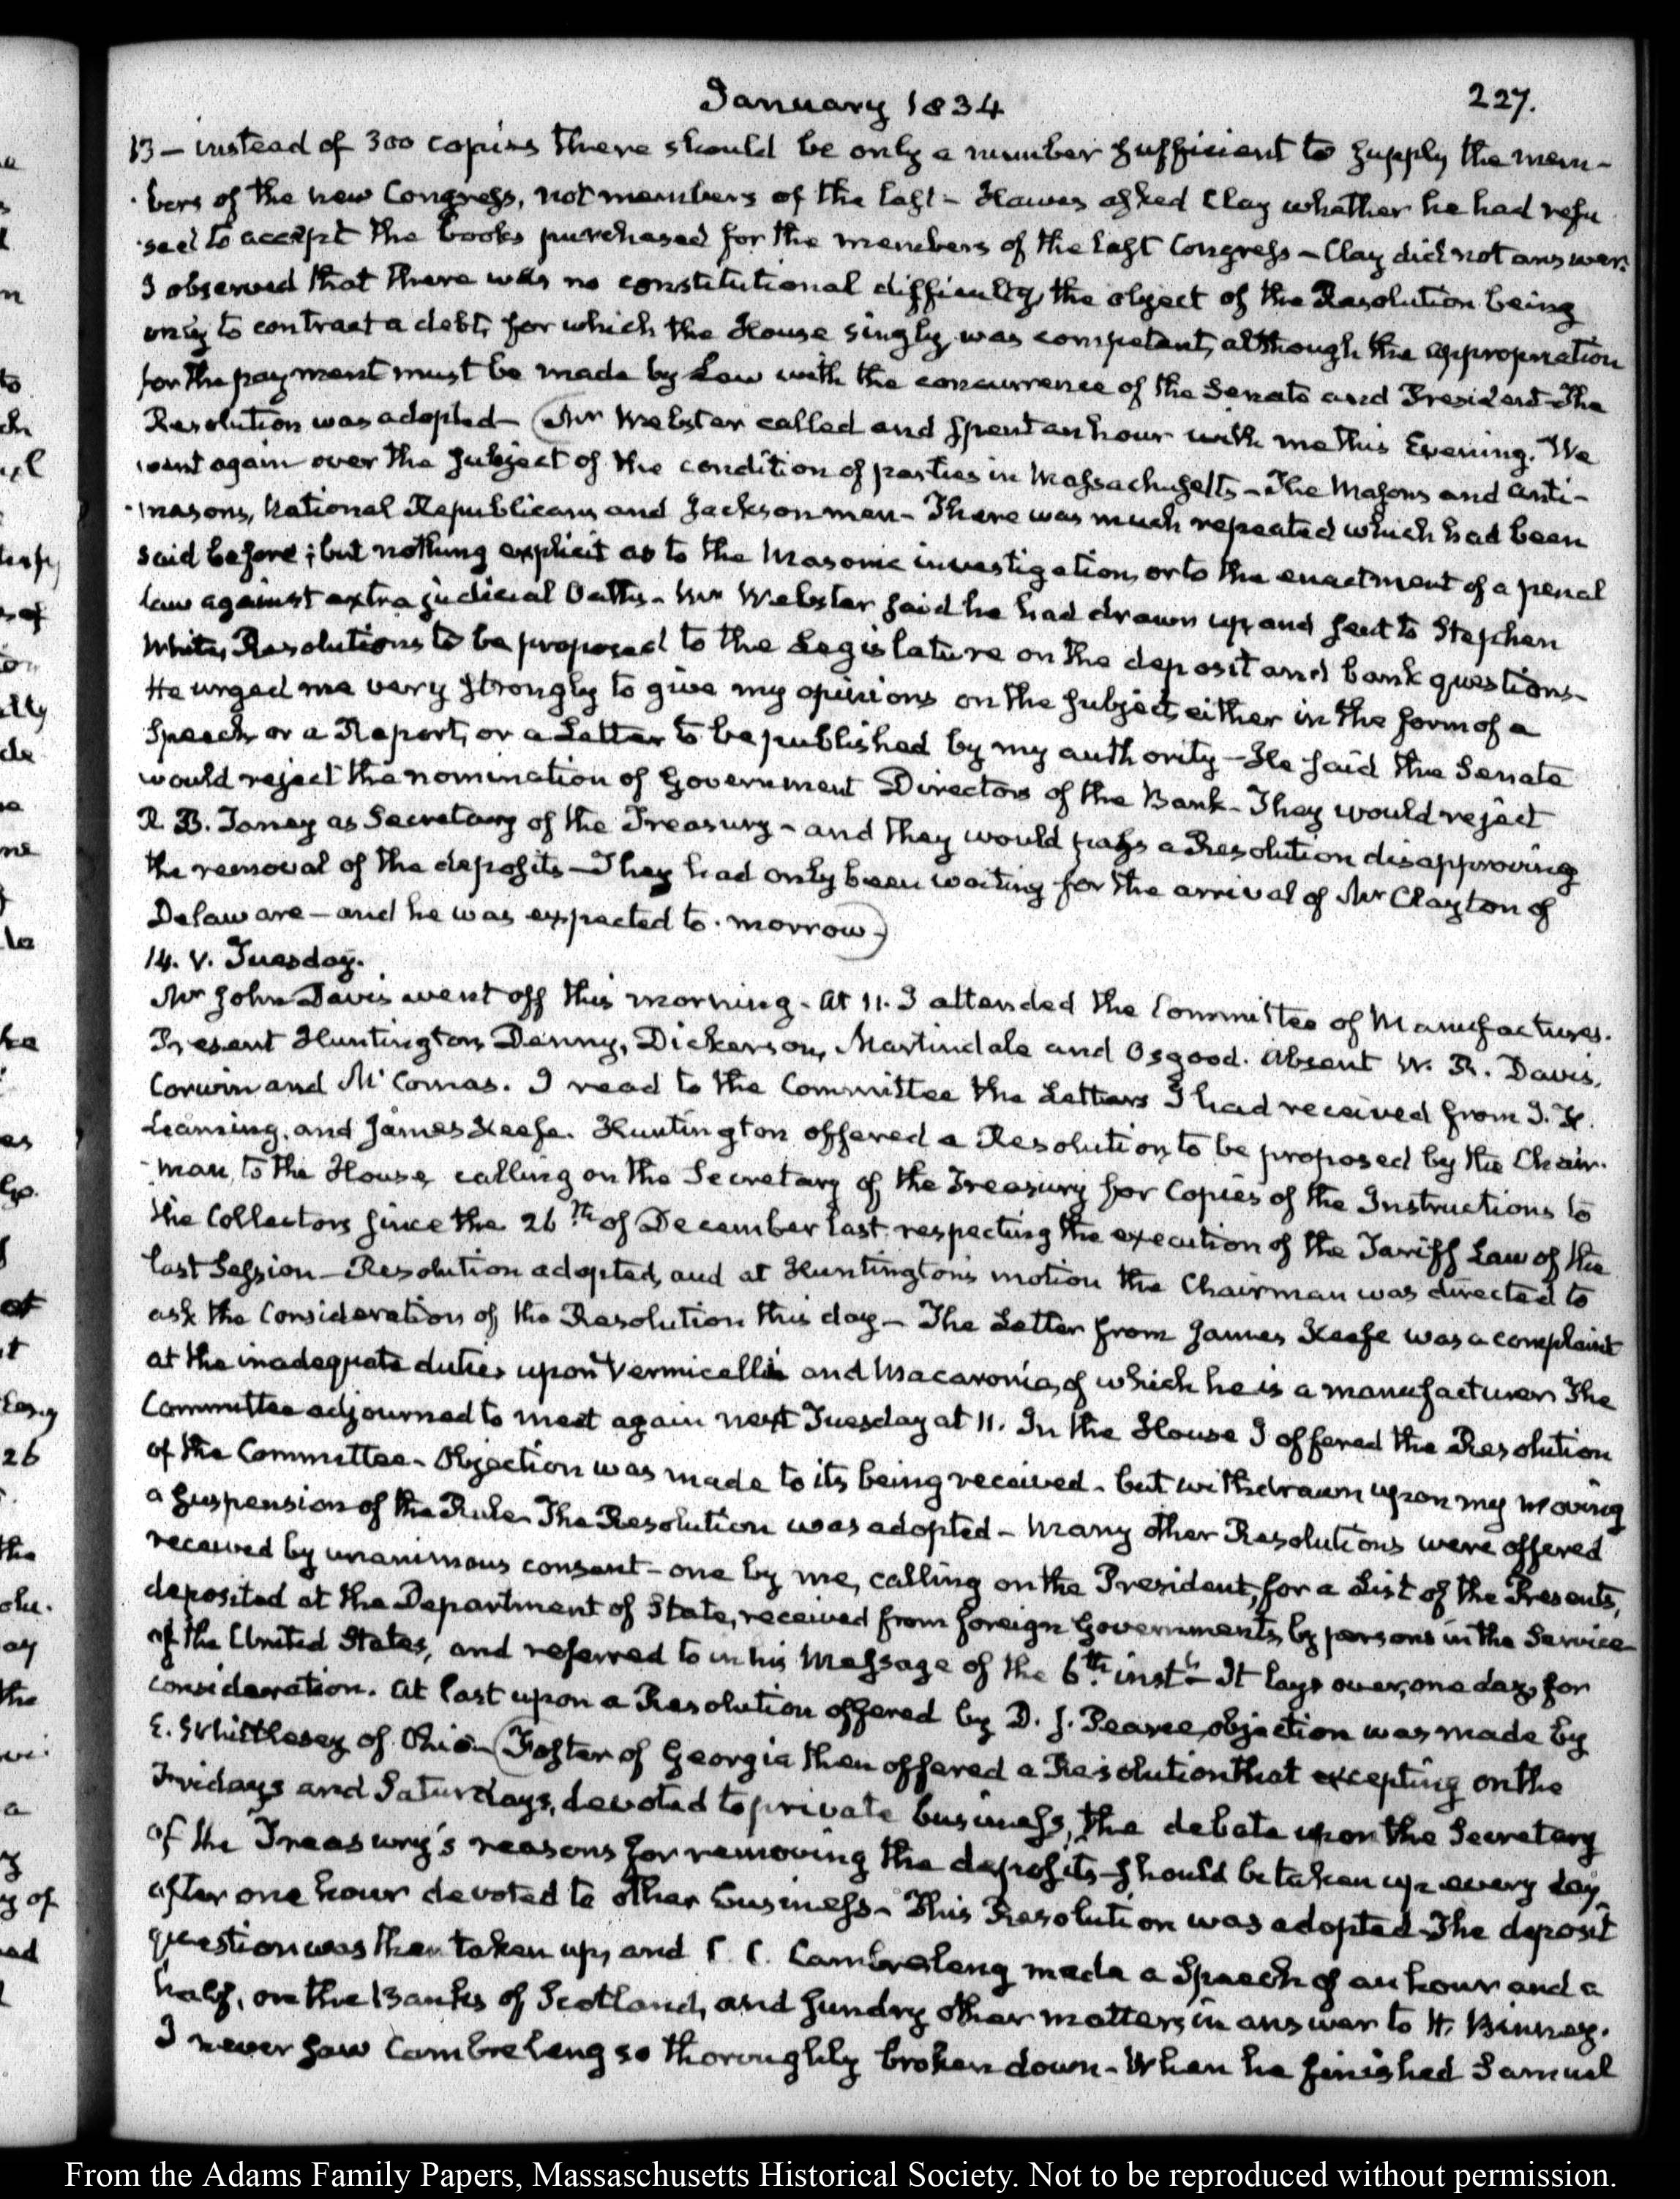 January 1834
227.
13 — instead of 300 copies there should be only a number sufficient to supply the mem-
bers of the new Congress, not members of the last — Hawes asked Clay whether he had refu
sed to accept the books purchased for the members of the last Congress — Clay did not answer.
I observed that there was no constitutional difficulty, the object of the Resolution being
only to contract a debt, for which the House singly was competent, although the appropriation
for the payment must be made by Law with the concurrence of the Senate and President — The
Resolution was adopted — (Mr Webster called and spent an hour with me this Evening. We
went again over the subject of the condition of parties in Massachusetts — The Masons and Anti-
masons, National Republicans and Jackson men — There was much repeated which had been
said before; but nothing explicit as to the Masonic investigation, or to the enactment of a penal
law against extrajudicial Oaths — Mr Webster said he had drawn up, and sent to Stephen
White, Resolutions to be proposed to the Legislature on the deposit and bank questions —
He urged me very strongly to give my opinions on the subject, either in the form of a
Speech, or a Report, or a Letter to be published by my authority — He said the Senate
would reject the nomination of Government Directors of the Bank — They would reject
R. B. Taney as Secretary of the Treasury — and they would pass a Resolution disapproving
the removal of the deposits — They had only been waiting for the arrival of Mr Clayton of
Delaware — and he was expected to-morrow)
14. V. Tuesday.
Mr John Davis went off this morning — At 11. I attended the Committee of Manufactures.
Present Huntington, Denny, Dickerson, Martindale and Osgood. Absent W. R. Davis,
Corwin and McComas. I read to the Committee the Letters I had received from J. F.
Leaming, and James Keefe. Huntington offered a Resolution, to be proposed by the Chair-
man, to the House, calling on the Secretary of the Treasury for Copies of the Instructions to
the Collectors since the 26th of December last, respecting the execution of the Tariff Law of the
last Session — Resolution adopted, and at Huntington's motion the Chairman was directed to
ask the Consideration of the Resolution this day — The Letter from James Keefe was a complaint
at the inadequate duties upon Vermicelli and Macaronia, of which he is a manufacturer. The
Committee adjourned to meet again next Tuesday at 11. In the House I offered the Resolution
of the Committee — Objection was made to its being received — but withdrawn upon my moving
a suspension of the Rule — The Resolution was adopted — Many other Resolutions were offered
received by unanimous consent — one by me, calling on the President, for a List of the Presents,
deposited at the Department of State, received from foreign Governments, by persons in the Service
of the United States, and referred to in his Message of the 6th instt — It lays over, one day, for
consideration. At last upon a Resolution offered by D. J. Pearce, objection was made by
E. Whittlesey of Ohio — (Foster of Georgia then offered a Resolution that excepting on the
Fridays and Saturdays, devoted to private business, the debate upon the Secretary
of the Treasury's reasons for removing the deposits should be taken up every day
after one hour devoted to other business — This Resolution was adopted — The deposit
question was then taken up, and C. C. Cambreleng made a Speech of an hour and a
half, on the Banks of Scotland, and sundry other matters, in answer to H. Binney.
I never saw Cambreleng so thoroughly broken down — When he finished Samuel
From the Adams Family Papers, Massaschusetts Historical Society. Not to be reproduced without permission.